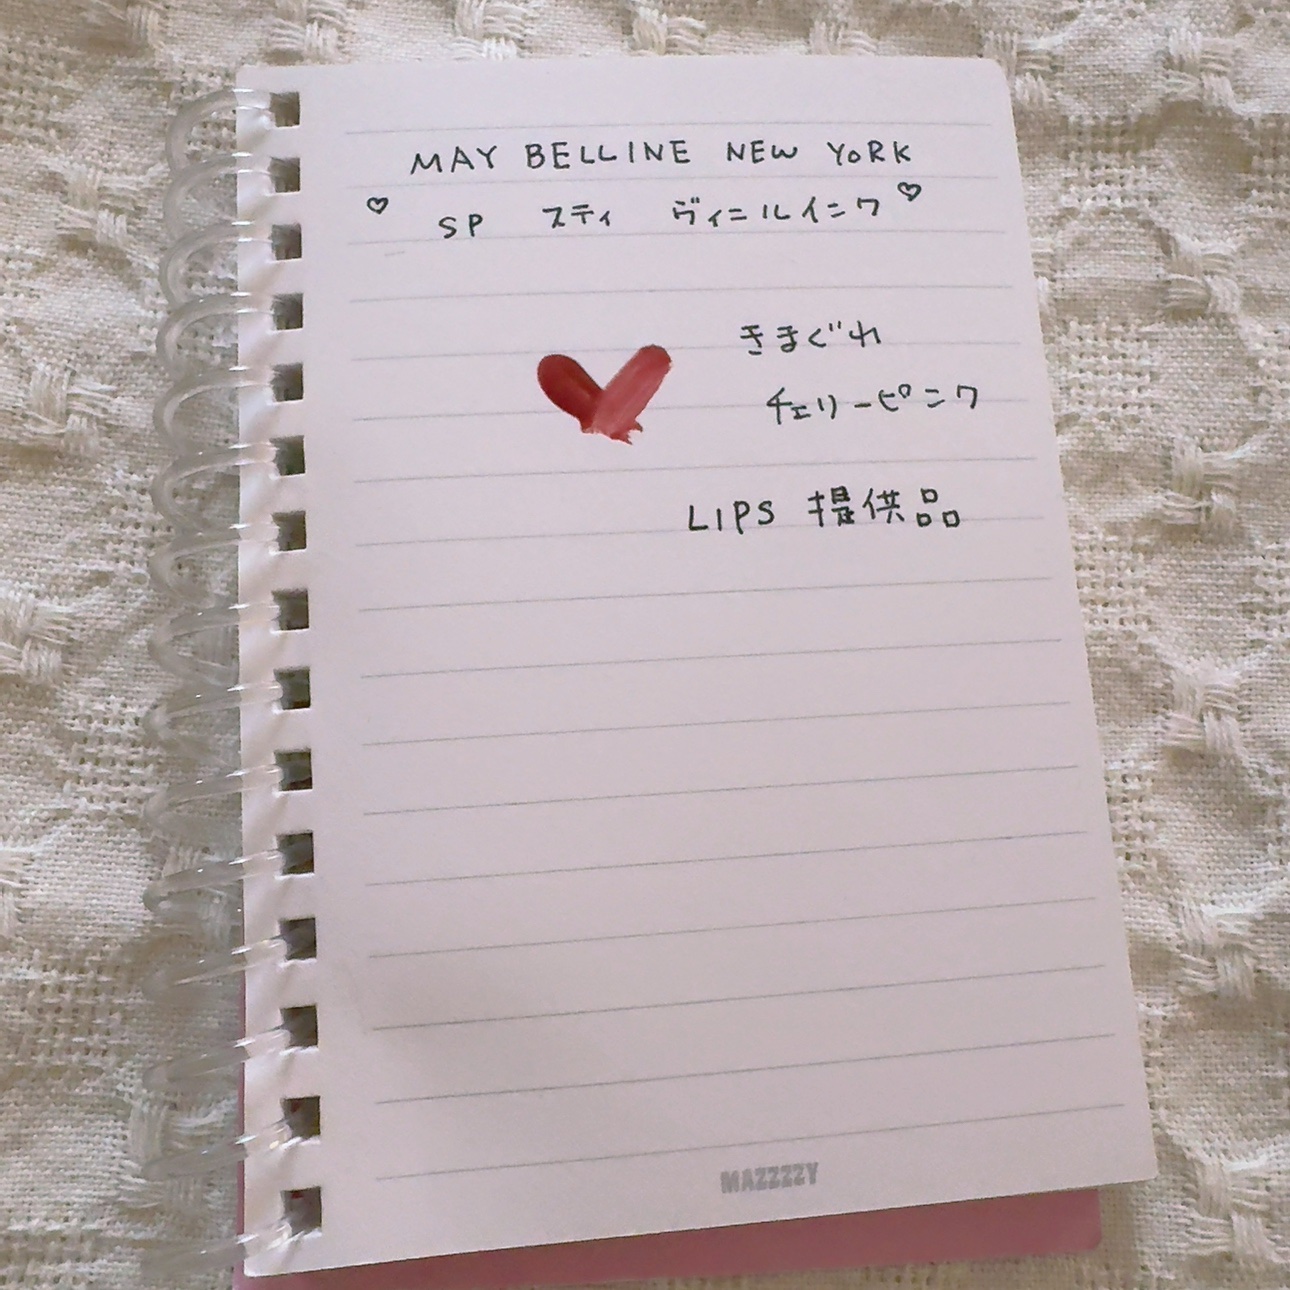 MAY BELLINE NEW YORK
♡ SP スティ ヴィニルインク ♡
きまぐれ
チェリーピンク
LIPS 提供品
MAZZZZY